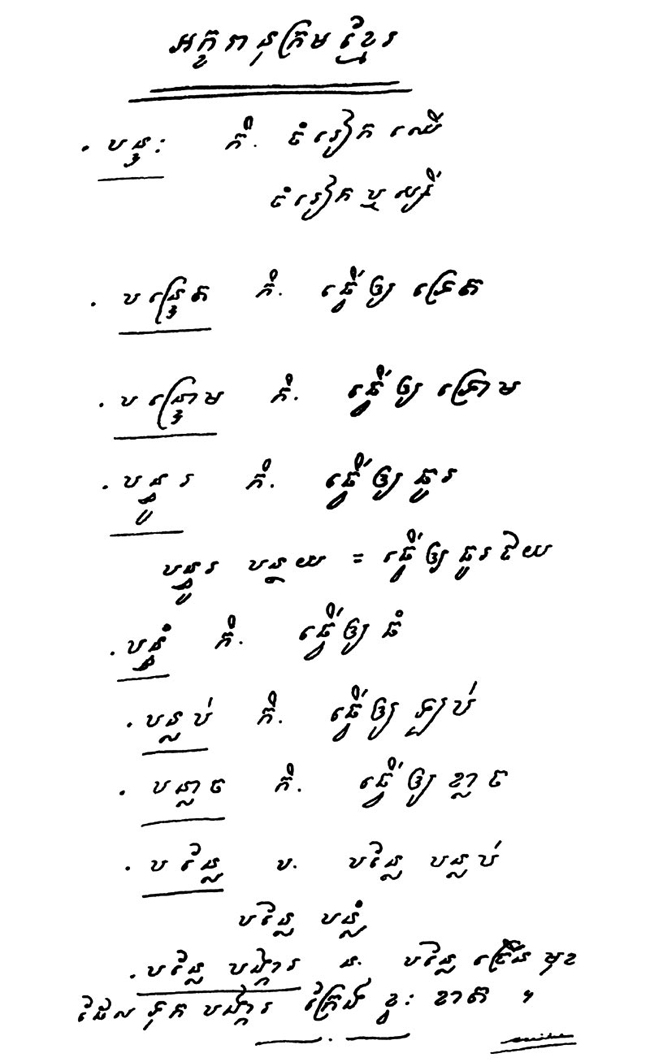 អក្ខរានុក្រមខ្មែរ
. បន្ទុះ កិ. ចំរៀក ឈើ
ចំរៀក ឬស្សី
. បន្ទ្រេត កិ. ធ្វើឲ្យ ទ្រេត
. បន្ទ្រោម កិ. ធ្វើឲ្យ ទ្រោម
. បន្ធូរ កិ. ធ្វើឲ្យ ធូរ
បន្ធូរ បន្ថយ = ធ្វើឲ្យ ធូរ ថយ
. បន្ធំ កិ. ធ្វើឲ្យ ធំ
. បន្លប់ កិ. ធ្វើឲ្យ ឡប់
. បន្លាច កិ. ធ្វើឲ្យ ខ្លាច
. បន្លែ ប. បន្លែ បន្លប់
បន្លែ បន្លំ
. បន្លែ បង្ការ ន. បន្លែ ច្រើន មុខ
ដែល ទុក បង្ការ ក្រែង ខ្វះ ខាត ។